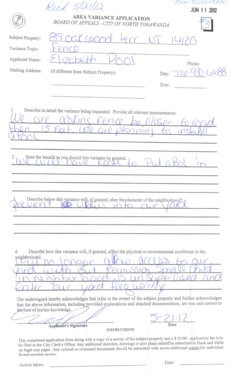 Rec'd 5/21/12
JUN 11 2012
AREA VARIANCE APPLICATION
BOARD OF APPEALS - CITY OF NORTH TONAWANDA
Subject Property: 89 Oakwood Terr NT 14120
Variance Topic: Fence
Applicant Name: Elizabeth Pool
Phone:
Mailing Address: (if different from Subject Property)
Day: 716-
Eve:
1. Describe in detail the variance being requested. Provide all relevant measurements.
We are asking Fence be closer to road
then 15 Feet. We are planning to install
a pool
2. State the benefit to you should this variance be granted.
We will have room to Put a Pool in
3. Describe below this variance will, if granted, alter the character of the neighborhood?
Prevent view into our yard
4. Describe how this variance will, if granted, affect the physical or environmental conditions in the
neighborhood.
Will no longer allow access to our
yard with out Permission. Small child
in neighborhood is unsupervised and
Enter our yard frequently
The undersigned hereby acknowledges that (s)he is the owner of the subject property and further acknowledges
that the above information, including provided explanations and attached documentation, are true and correct to
the best of his/her knowledge.
5-21-12
Applicant's Signature
Date
INSTRUCTIONS
This completed application form along with a copy of a survey of the subject property and a $ application fee is to
be filed in the City Clerk's Office. Any additional sketches, drawings or plot plans should be submitted in black and white
on legal size paper. Any colored or oversized documents should be submitted with seven additional copies for individual
Board member review.
Action taken:
Date: